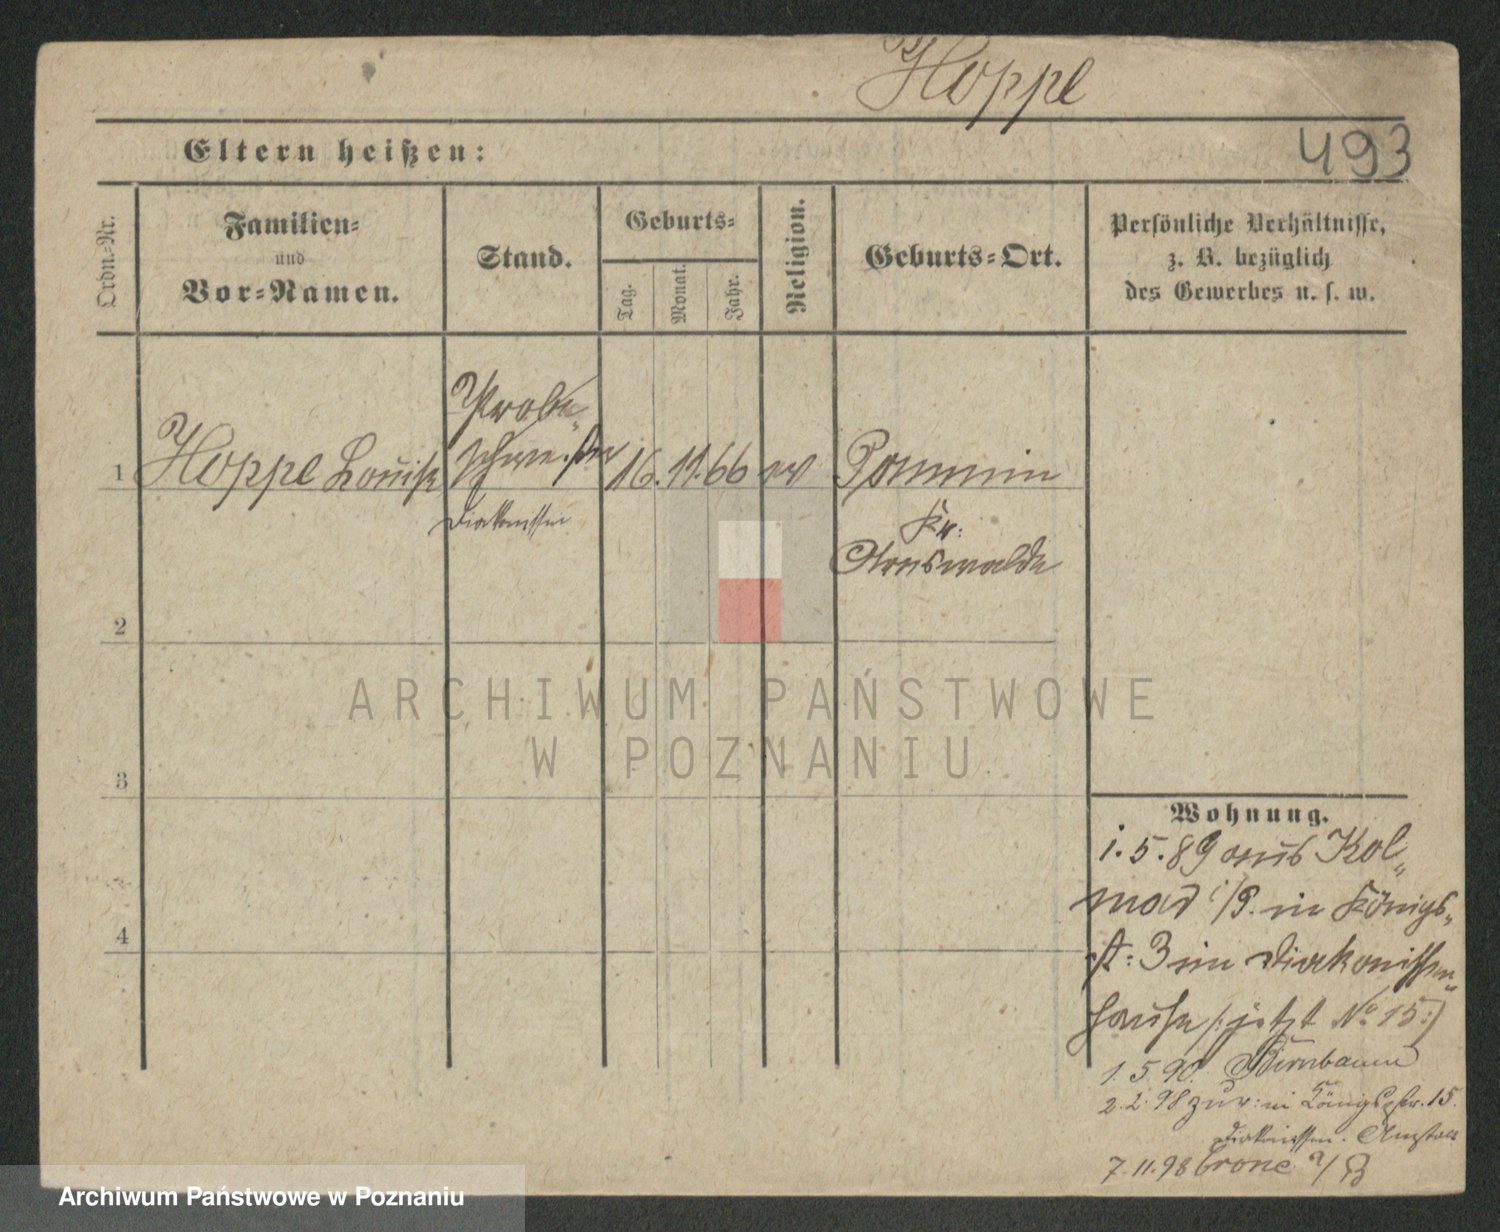 Hoppe
493
Eltern heißen:
Ordn.-Nr.
Familien-
und
Vor-Namen.
Stand.
Geburts-
Tag.
Monat.
Jahr.
Religion.
Geburts-Ort.
Persönliche Verhältnisse,
z. B. bezüglich
des Gewerbes u. s. w.
1 Hoppe Louise
Probe-
schwester
Diakonissin
16. 11. 66
ev
Pammin
Kr:
Arnswalde
2
3
4
Wohnung.
1. 5. 89 aus Kol-
mar i/P. in Königs-
st: 3 im Diakonissen-
hause /: jetzt No 15:/
1. 5. 90. Birnbaum
2. 2. 98 zur: in Königsstr. 15.
Diakonissen. Anstalt
7. 11. 98 Crone a/B
ARCHIWUM PAŃSTWOWE
W POZNANIU
Archiwum Państwowe w Poznaniu